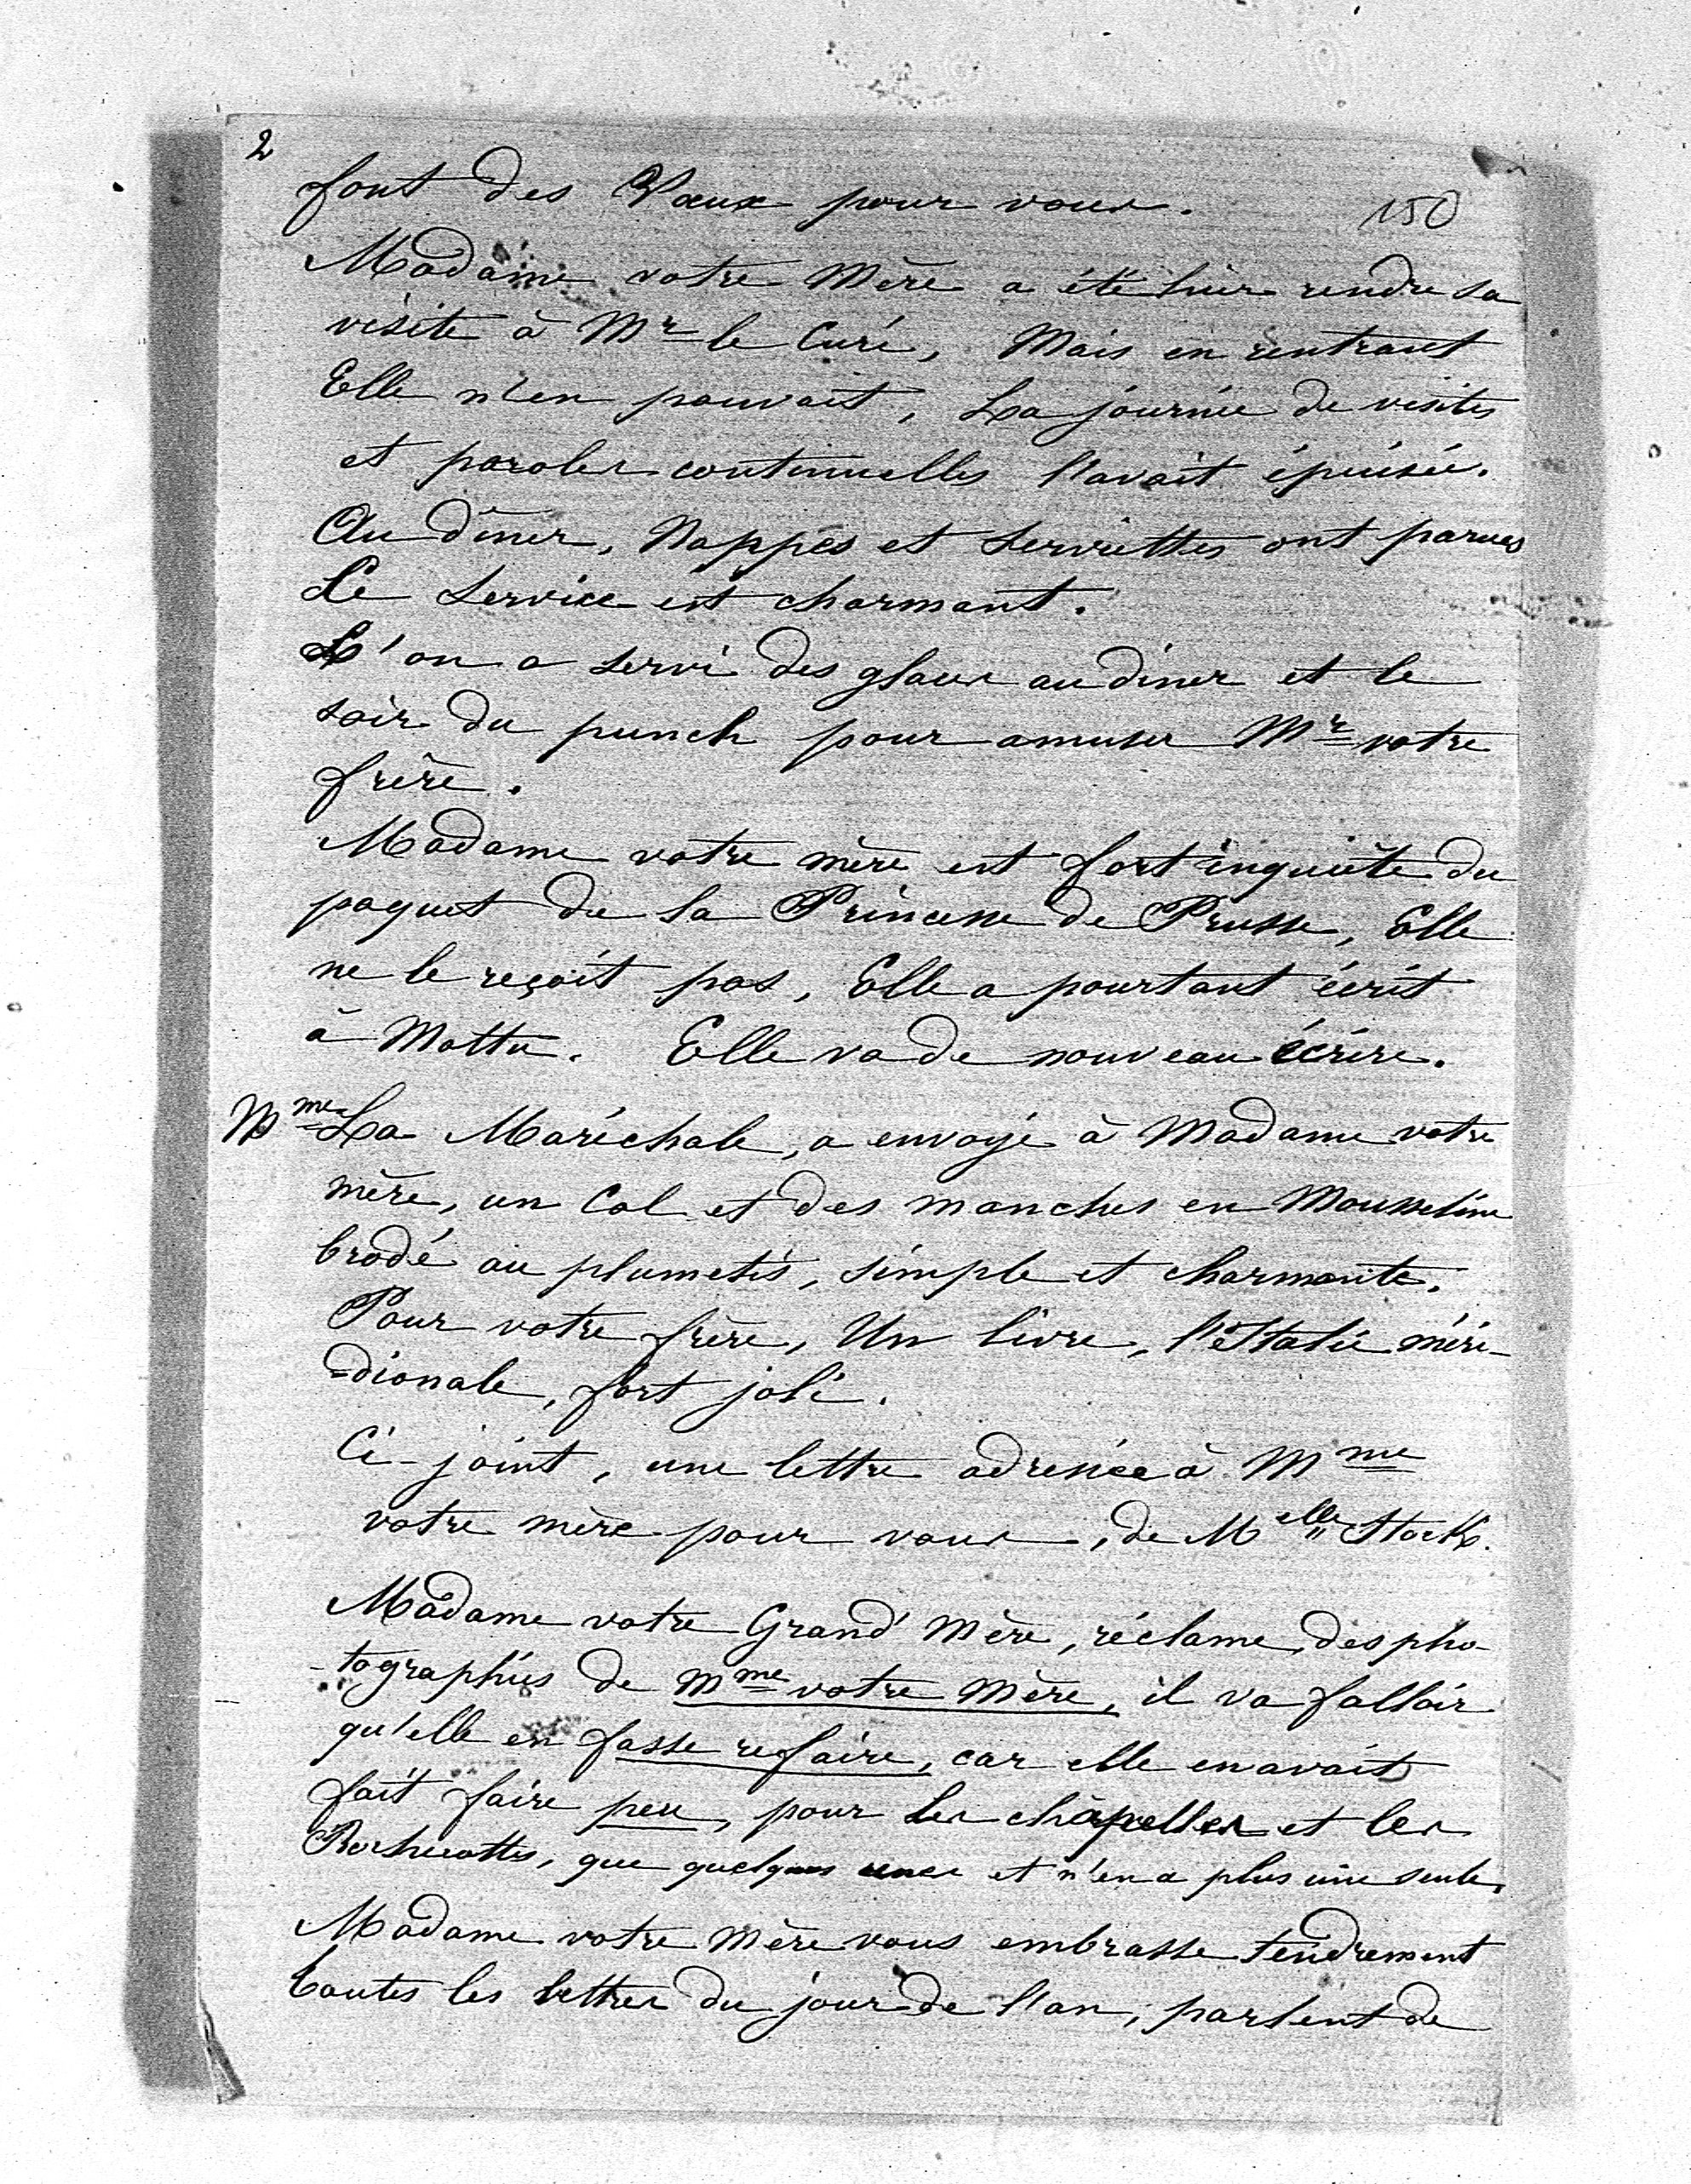 2
font des Vœux pour vous.
150
Madame votre Mère a été hier rendre sa
visite à Mr le Curé, Mais en rentrant
Elle n'en pouvait, La journée de visites
et paroles continuelles l'avait épuisée.
Au dîner, Nappes et Serviettes ont parues
Le Service est charmant.
L'on a servi des glaces au dîner et le
soir du punch pour amuser Mr votre
frère.
Madame votre mère est fort inquiète du
paquet de la Princesse de Prusse, Elle
ne le reçoit pas, Elle a pourtant écrit
à Mottu. Elle va de nouveau écrire.
Mme La Maréchale, a envoyé à Madame votre
mère, un Col et des manches en Mousseline
brodé au plumetis, simple et charmante.
Pour votre frère, Un livre, l'Italie méri-
-dionale, fort joli.
Ci-joint, une lettre adressée à Mme
votre mère pour vous, de Melle
Madame votre Grand' Mère, réclame, des pho-
-tographies de Mme votre Mère, il va falloir
qu'elle en fasse refaire, car elle en avait
fait faire peu, pour les chapelles et les
que quelques unes et n'en a plus une seule.
Madame votre Mère vous embrasse tendrement
toutes les lettres du jour de l'an, parlent de